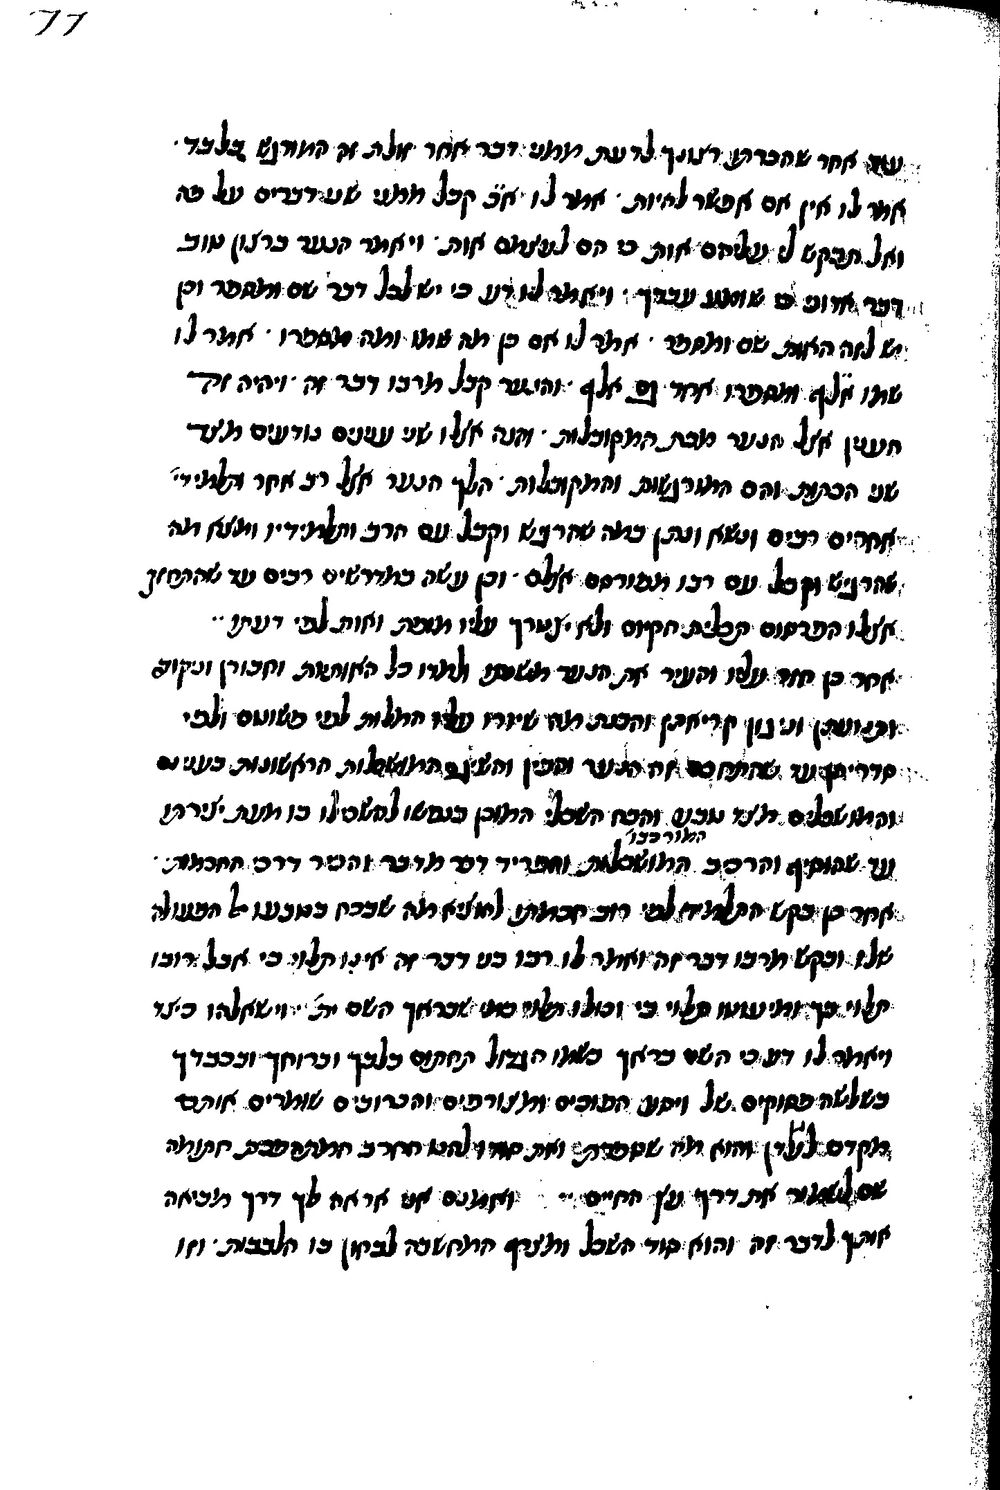 77
עוד אחר שהכרתי רצונך לדעת ממני דבר אחר זולת זה המורגש בלבד ·
אמר לו אין אם אפשר להיות · אמר לו א"כ קבל ממני שני דברים על פה
ואל תבקש לי עליהם אות כי הם לעצמם אות · ויאמר הנער ברצון טוב
דבר אדוני כי שומע עבדך · ויאמר לו דע כי יש לכל דבר שם ומספר וכן
יש לזה האות שם ומספר · אמר לו אם כן מה שמו ומה מספרו · אמר לו
שמו אלף ומספרו אחד גם אלף · והנער קבל מרבו דבר זה · ויהיה זה
הענין אצל הנער מכת המקובלות · והנה אצלו שני ענינים נודעים מצד
שני הכתות והם המורגשות והמקובלות · הלך הנער אצל רב אחר ותלמידי'
אחרים רבים ונשא ונתן במה שהרגיש וקבל עם הרב ותלמידיו ומצא מה
שהרגיש וקבל עם רבו מפורסם אצלם · וכן עשה במדרשים רבים עד שהתחזק
אצלו הפרסום תכלית חקיום ולא יצטרך עליו מופת ואות לפי דעתו ··
אחר כן חזר עליו והעיר את הנער משמתו ולמדו כל האותיות וחבורן וניקוד
ותנועתן וניגון קריאתן והכנת מה שיורו עליו המלות לפי פשוטם ולפי
סדריהן עד שהתחכם זה הנער והבין והשיג המושכלות הראשונות בענינם
והמושכלים מצד טבעו והכח השכלי המוכן בנפשו להשכילו בו מעת יצירתו
המורכבו'
עד שהוסיף והרכיב המושכלות והפריד דבר מדבר והכיר דרכי החכמות ·
אחר כן בקש התלמיד לפי רוב חכמתו להוציא מה שבכח בטבעו אל הפעולה
שלו ובקש מרבו דבר זה ואמר לו רבו בני דבר זה אינו תלוי בי אבל רובו
תלוי בך ומיעוטו תלוי בי וכולו תלוי במי שבראך השם ית' · וישאלהו כיצד
ויאמר לו דע כי השם בראך בשמו הגדול החתום בלבך וברוחך ובכבדך
בשלשה פסוקים של ויסע הפוכים ומצורפים והכרובים שומרים אותם
מקדם לעדן והוא מה שנפרדת ואת סודו להט החרב המתהפכת חתומה
שם לשמור את דרך עץ החיים ·· ואמנם אני אראה לך דרך מביאה
אותך לדבר זה והוא סוד השכל ומצרף המחשבה לבחון בו הלבבות · וזו